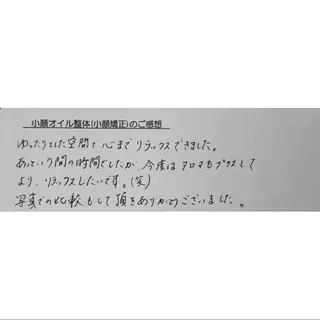 小顔オイル整体(小顔矯正)のご感想
ゆったりとした空間で心までリラックスできました。
あっという間の時間でしたが、今度はアロマもプラスして
より、リラックスしたいです。(笑)
写真での比較もして頂きありがとうございました。